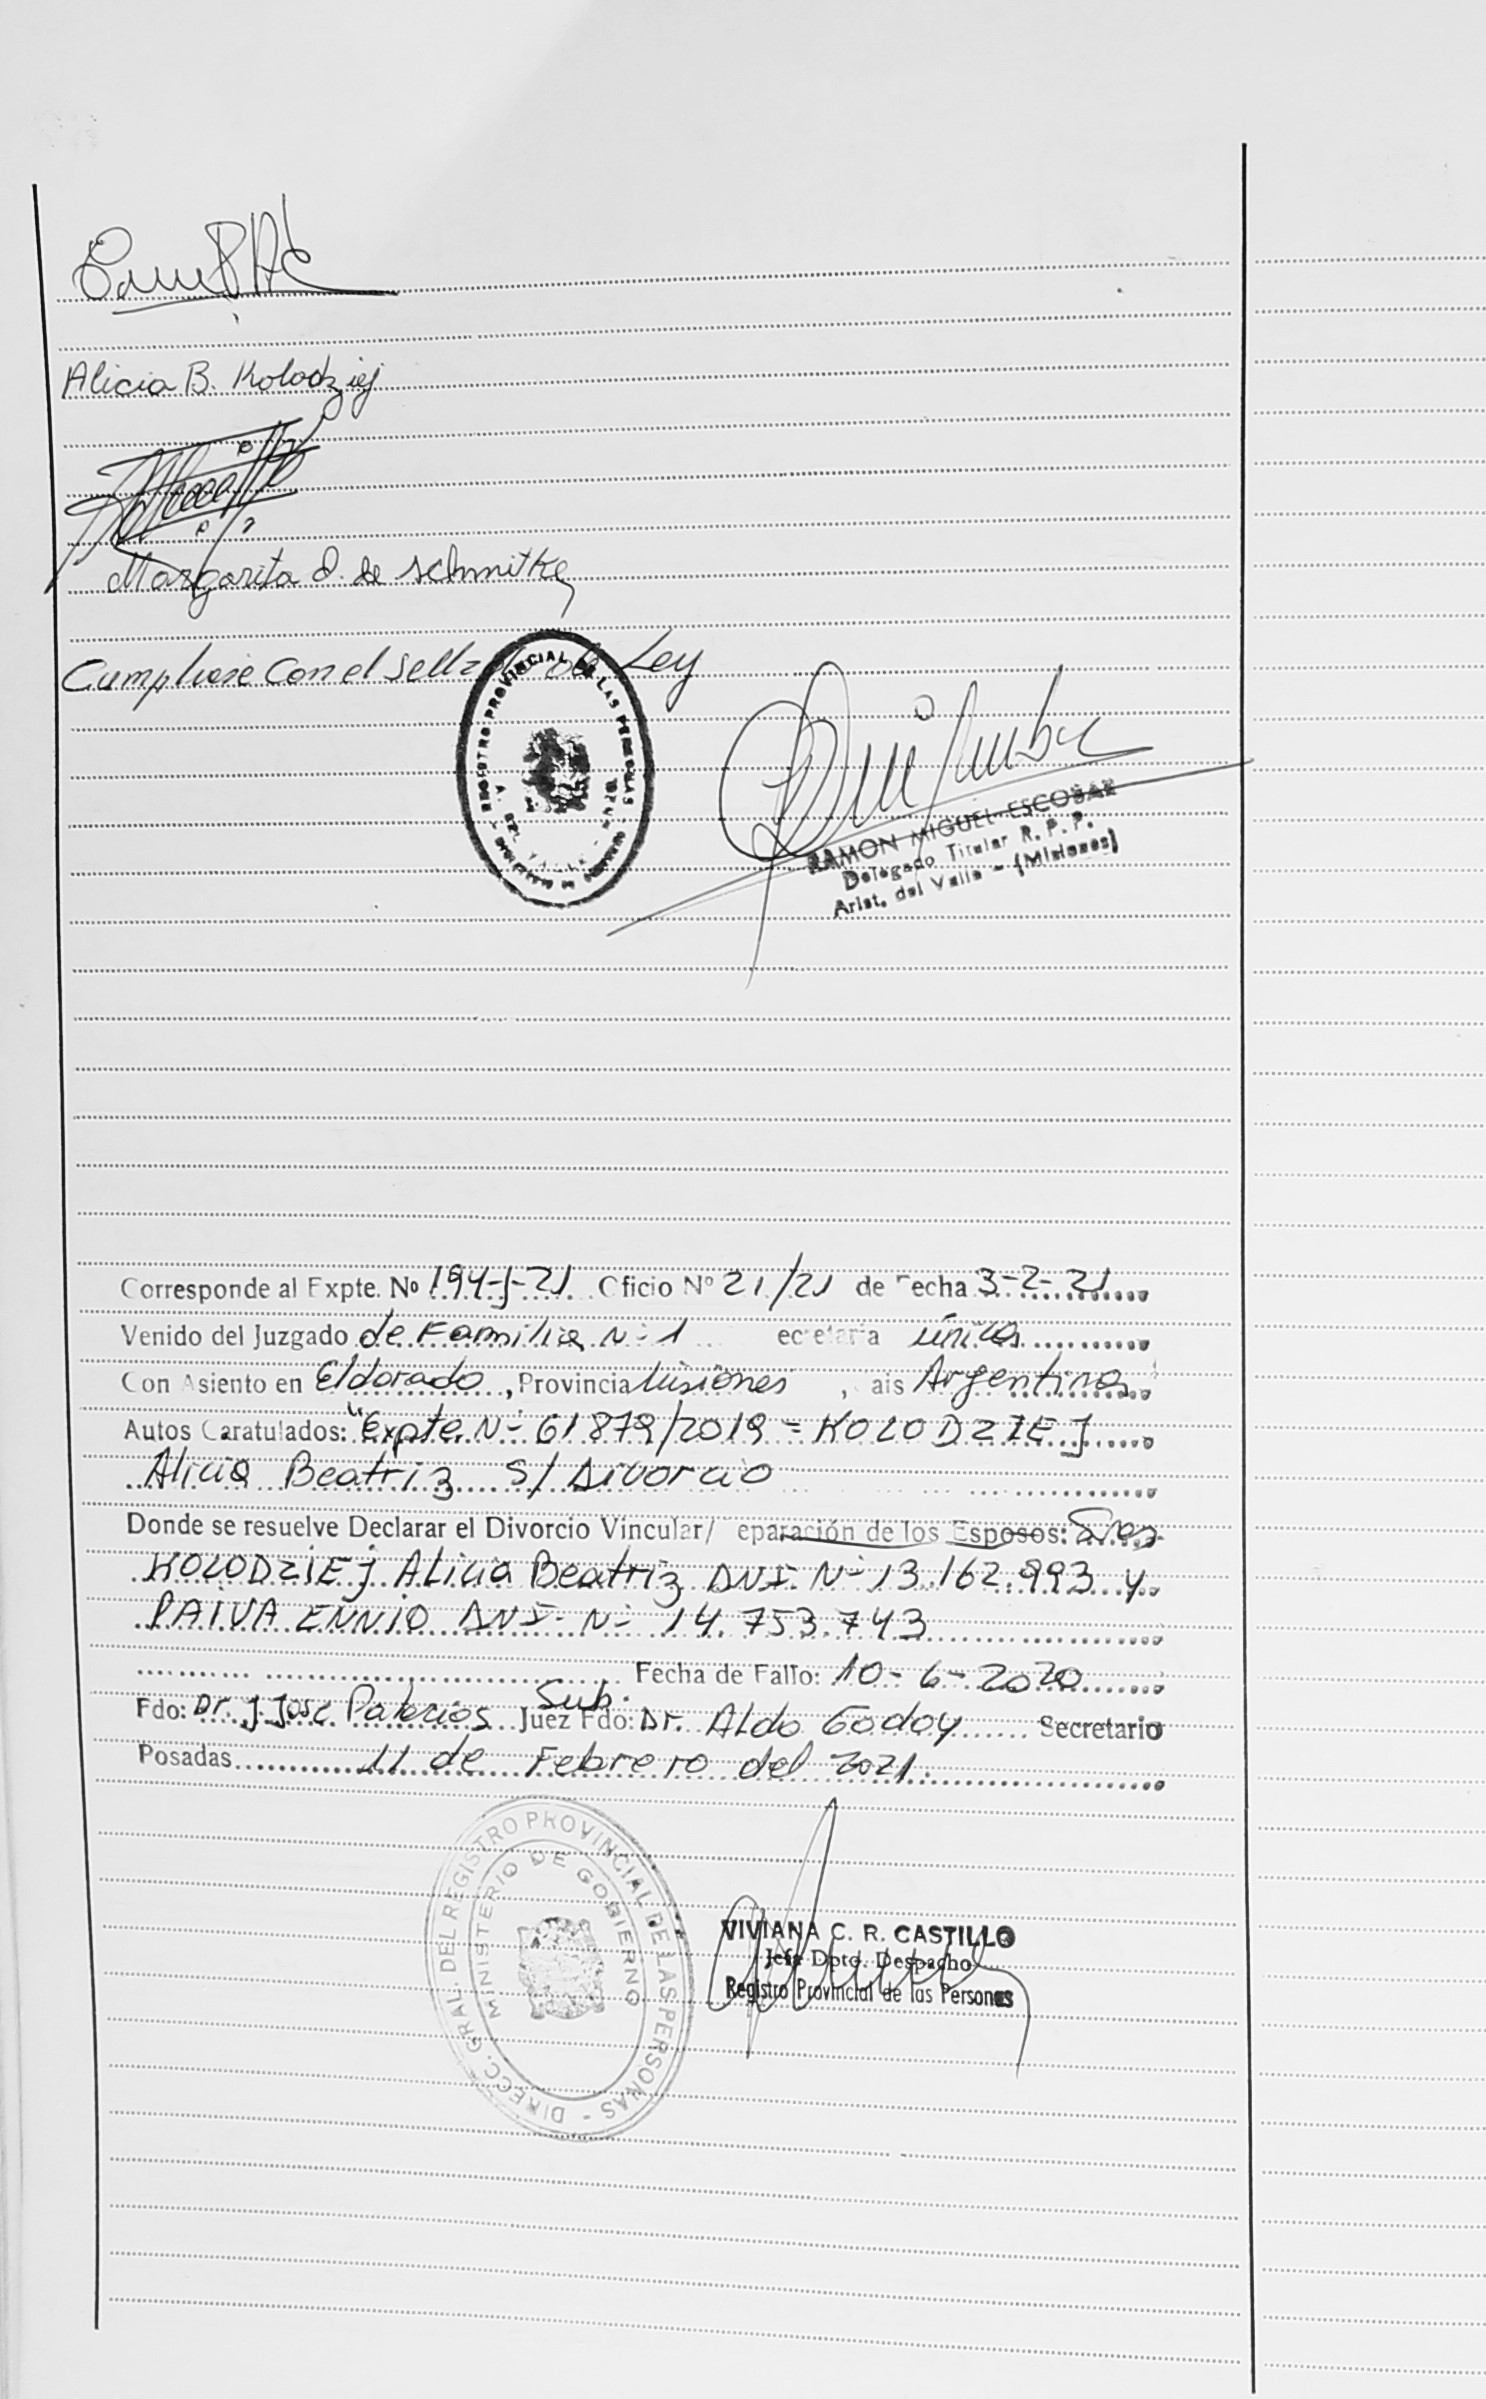 Alicia B. Kolodziej
Margarita O. de Schmitke
Cumpliose con el sellado de Ley
REGISTRO PROVINCIAL DE LAS PERSONAS
RAMON MIGUEL ESCOBAR
Delegado Titular R. P. P.
Arist. del Valle - (Misiones)
Corresponde al Expte. No 194-J-21 Oficio Nº 21/21 de Fecha 3-2-21
Venido del Juzgado de Familia N- 1 ecretaria única
Con Asiento en Eldorado, Provincia Misiones, ais Argentina
Autos Caratulados: "Expte. N- 61879/2019 = KOLODZIEJ
Alicia Beatriz S/ Divorcio
Donde se resuelve Declarar el Divorcio Vincular/ eparación de los Esposos: Sres
KOLODZIEJ Alicia Beatriz DNI. N- 13.162.993 y
PAIVA ENNIO DNI- N- 14.753.743
Fecha de Fallo: 10-6-2020
Sub.
Fdo: Dr. J José Palacios Juez Fdo: Dr. Aldo Godoy Secretario
Posadas 11 de Febrero del 2021.
DIRECC. GRAL. DEL REGISTRO PROVINCIAL DE LAS PERSONAS -
MINISTERIO DE GOBIERNO
VIVIANA C. R. CASTILLO
Jefe Dpto. Despacho
Registro Provincial de las Personas